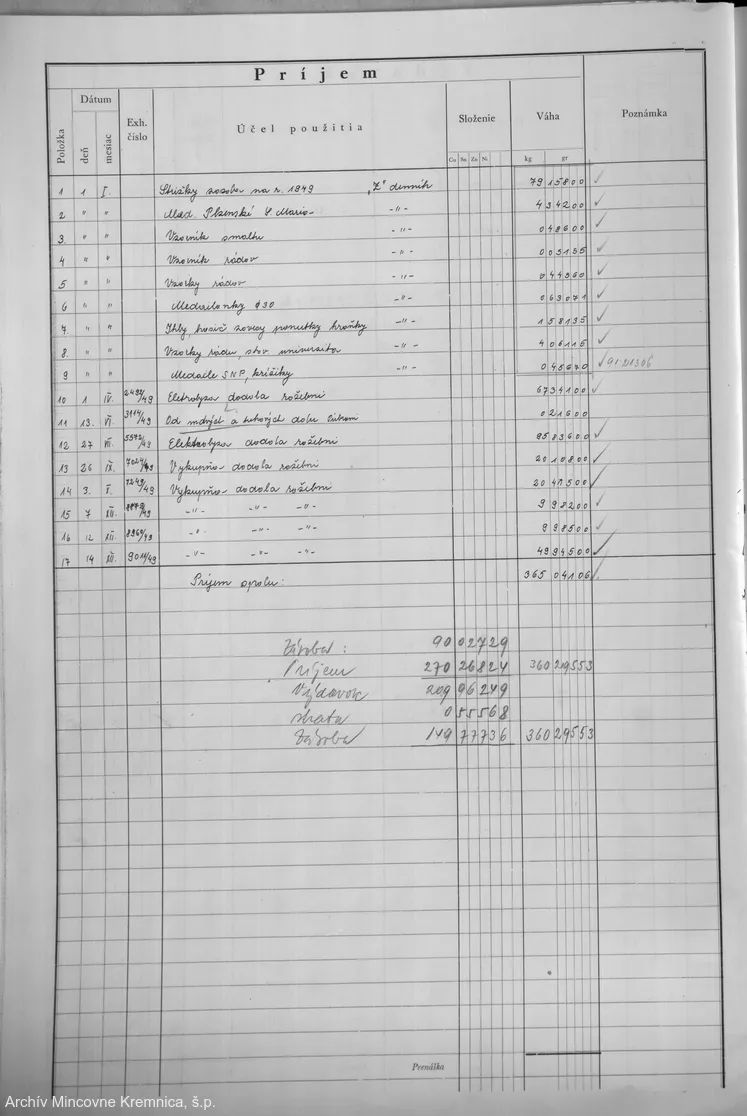 Príjem
Položka
Dátum
deň
mesiac
Exh. číslo
Účel použitia
Složenie
Cu Sn Zn Ni
Váha
kg gr
Poznámka
1 1 I. Strižky zásoba na r. 1949 „Z" denník 79 15800
2 " " Med. Plzenské S. Maria -"- 4 34200
3. " " Vzorník smaltu 0 48600
4 " " Vzorník rádov -"- 0 05135
5 " " Vzorky rádov -"- 0 44360
6 " " Medailonky ø30 -"- 0 63071
7. " " -"- 1 58135
8. " " Vzorky rádu, slov. univerzita -"- 4 06115
9 " " Medaile SNP, krížiky -"- 0 45670 91 21306
10 1 IV. 2492/49 Elektrolýza dodala rožební 67 34100
11 13. VI. 3114/49 Od a 0 21600
12 27 VII. 5572/49 Elektrolýza dodala rožební 85 83600
13 26 IX. 7024/49 Výkupňa dodala rožební 20 10800
14 3. X. 7249/49 Výkupňa dodala rožební 20 41500
15 7 XII. -"- -"- -"- 9 98200
16 12 XII. 8960/49 -"- -"- -"- 9 98500
17 14 XII. 9011/49 -"- -"- -"- 49 94500
Príjem spolu: 365 04106
Zásoba: 90 02729
Príjem 270 26824 360 29553
Výdavok 209 96249
strata 0 55568
Zásoba 149 77736 360 29553
Prenáška
Archív Mincovne Kremnica, š.p.